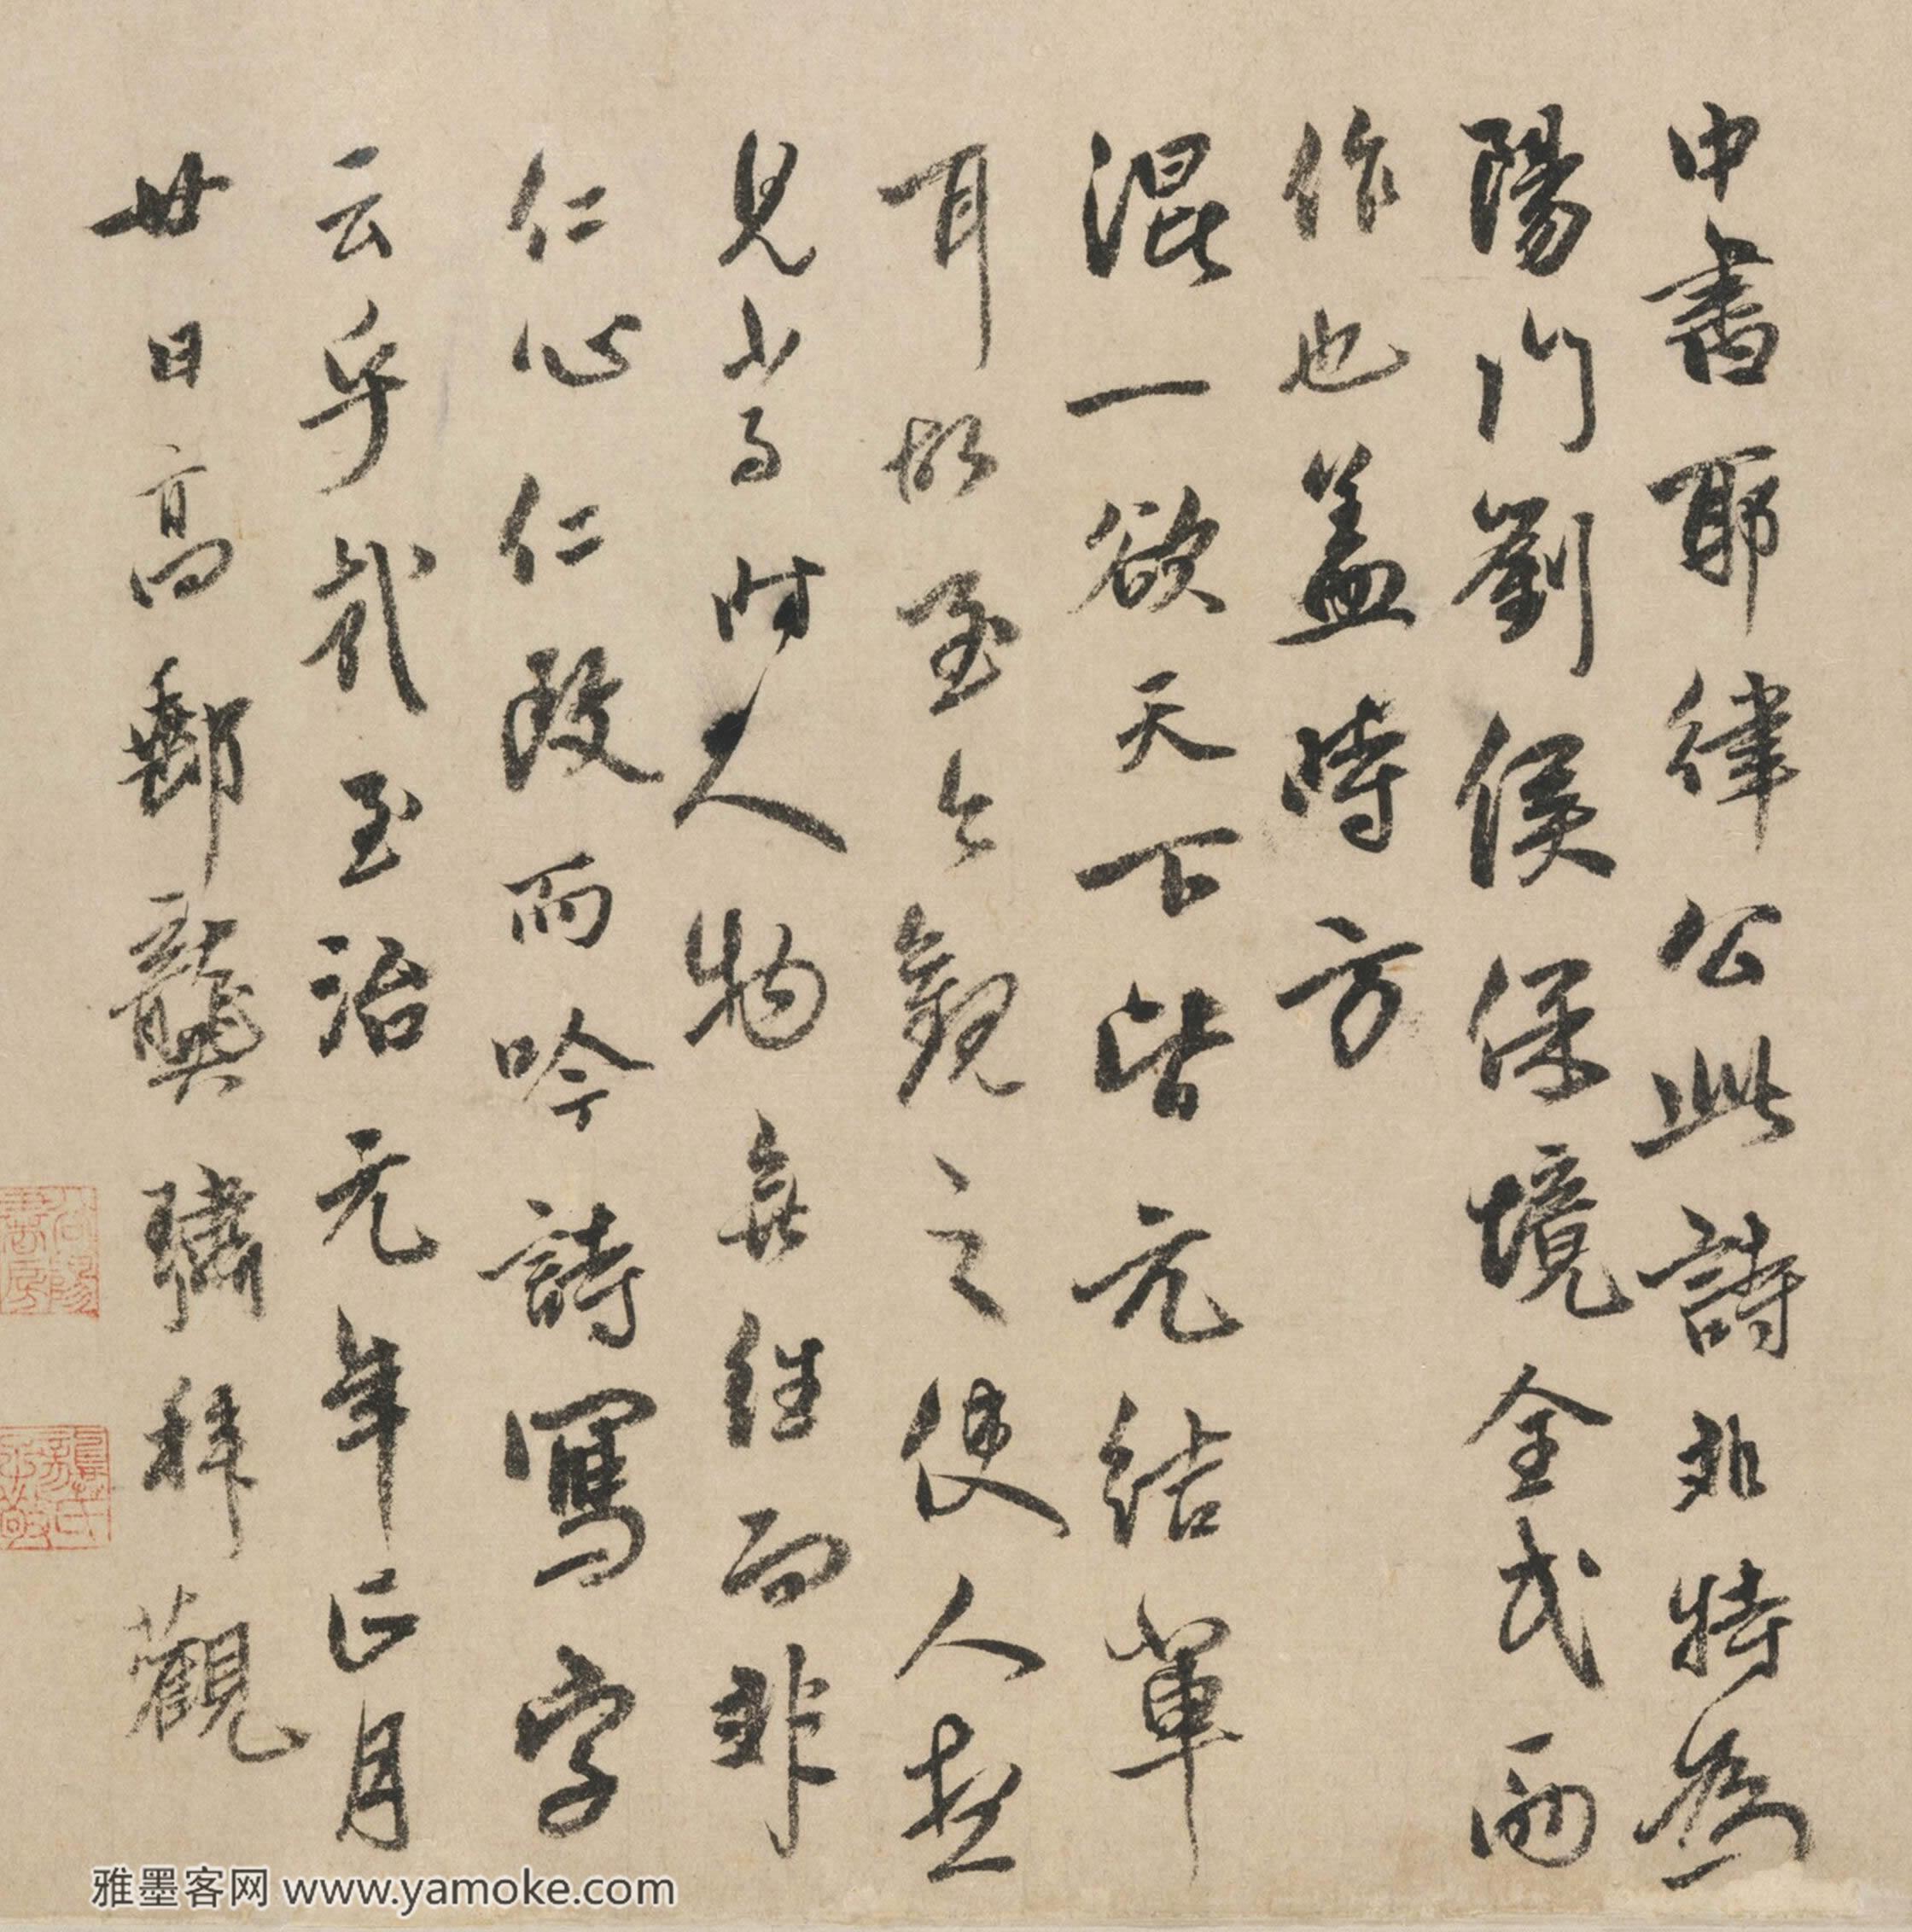 中書耶律公此詩非特為
陽門劉侯保境全民而
作也蓋時方
混一欲天下皆元結輩
耳故至今觀之使人想
見當時人物無往而非
仁心仁政而吟詩寫字
云乎哉至治元年正月
廿日高郵龔璛拜觀
雅墨客网 www.yamoke.com